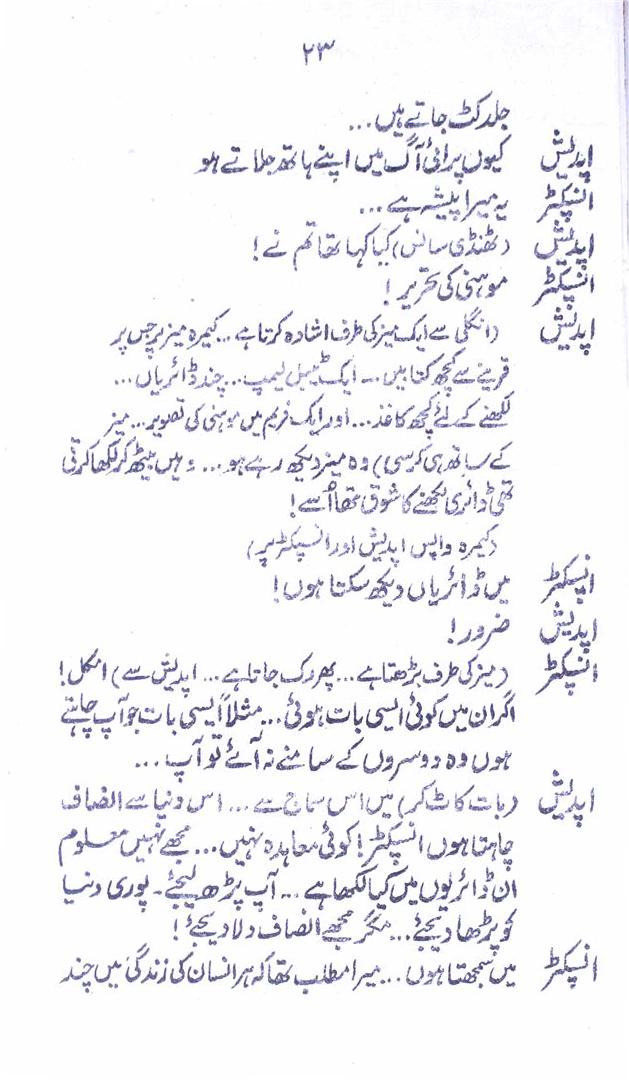 ۲۳
جلد کٹ جاتے ہیں...
اپدیش کیوں پرائی آگ میں اپنے ہاتھ جلاتے ہو
انسپکٹر یہ میرا پیشہ ہے...
اپدیش (ٹھنڈی سانس) کیا کہا تھا تم نے!
انسپکٹر موہنی کی تحریر!
اپدیش (انگلی سے ایک میز کی طرف اشادہ کرتا ہے... کیمرہ میز پر جس پر
قرینے سے کچھ کتابیں... ایک ٹیبل لیمپ... چند ڈائریاں...
لکھنے کے لئے کچھ کاغذ... اور ایک فریم میں موہنی کی تصویر... میز
کے ساتھ ہی کرسی) وہ میز دیکھ رہے ہو... وہیں بیٹھ کر لکھا کرتی
تھی ڈائری لکھنے کا شوق تھا اُسے!
(کیمرہ واپس اپدیش اور انسپکٹر پر)
انسپکٹر میں ڈائریاں دیکھ سکتا ہوں!
اپدیش ضرور!
انسپکٹر (میز کی طرف بڑھتا ہے... پھر رک جاتا ہے... اپدیش سے) انکل!
اگر ان میں کوئی ایسی بات ہوئی... مثلاً ایسی بات جو آپ چاہتے
ہوں وہ دوسروں کے سامنے نہ آئے تو آپ...
اپدیش (بات کاٹ کر) میں اس سماج سے... اس دنیا سے انصاف
چاہتا ہوں انسپکٹر! کوئی معاہدہ نہیں... مجھے نہیں معلوم
ان ڈائریوں میں کیا لکھا ہے... آپ پڑھ لیجئے۔ پوری دنیا
کو پڑھا دیجئے... مگر مجھے انصاف دلا دیجئے!
انسپکٹر میں سمجھتا ہوں... میرا مطلب تھا کہ ہر انسان کی زندگی میں چند